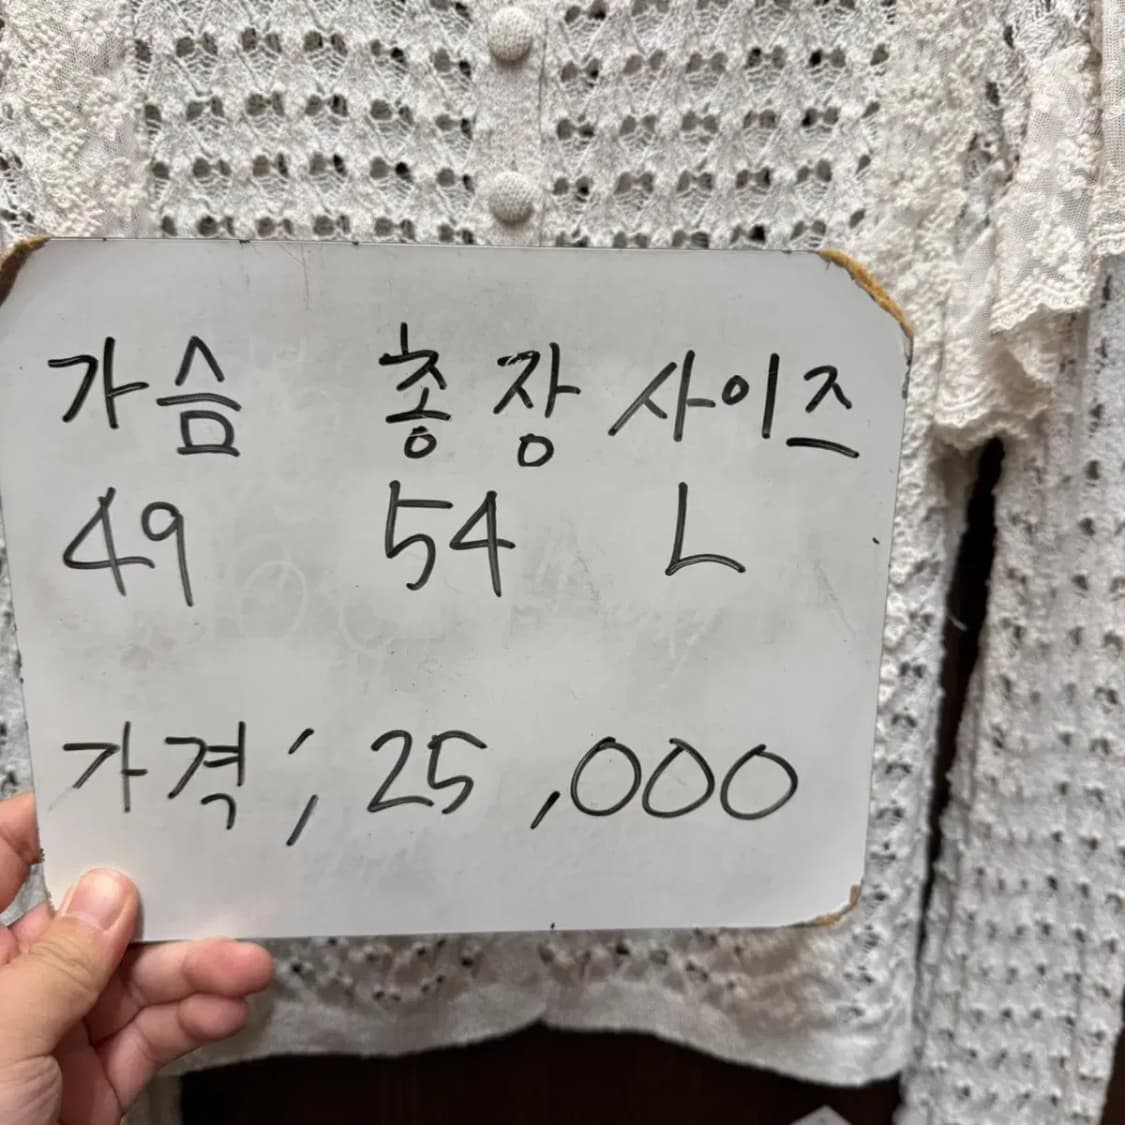 가슴 총장 사이즈
49 54 L
가격; 25,000